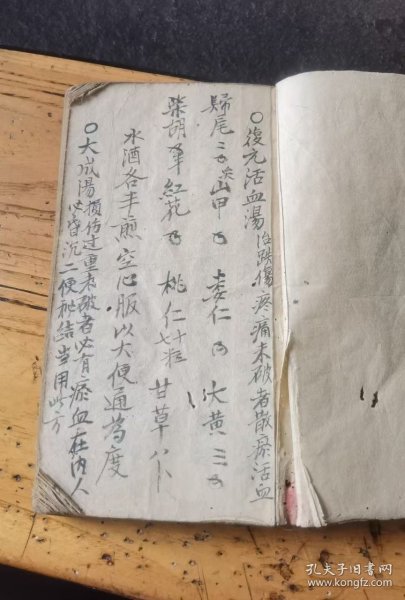 〇復元活血湯治跌傷疼痛未破者散瘀活血
歸尾 山甲 娄仁 大黄三
柴胡 紅花 桃仁十七粒 甘草八卜
水酒各半煎空心服以大便通為度
〇大成湯損伤过重未破者必有瘀血在内人
必昏沉二便秘结当用此方
孔夫子旧书网
www.kongfz.com